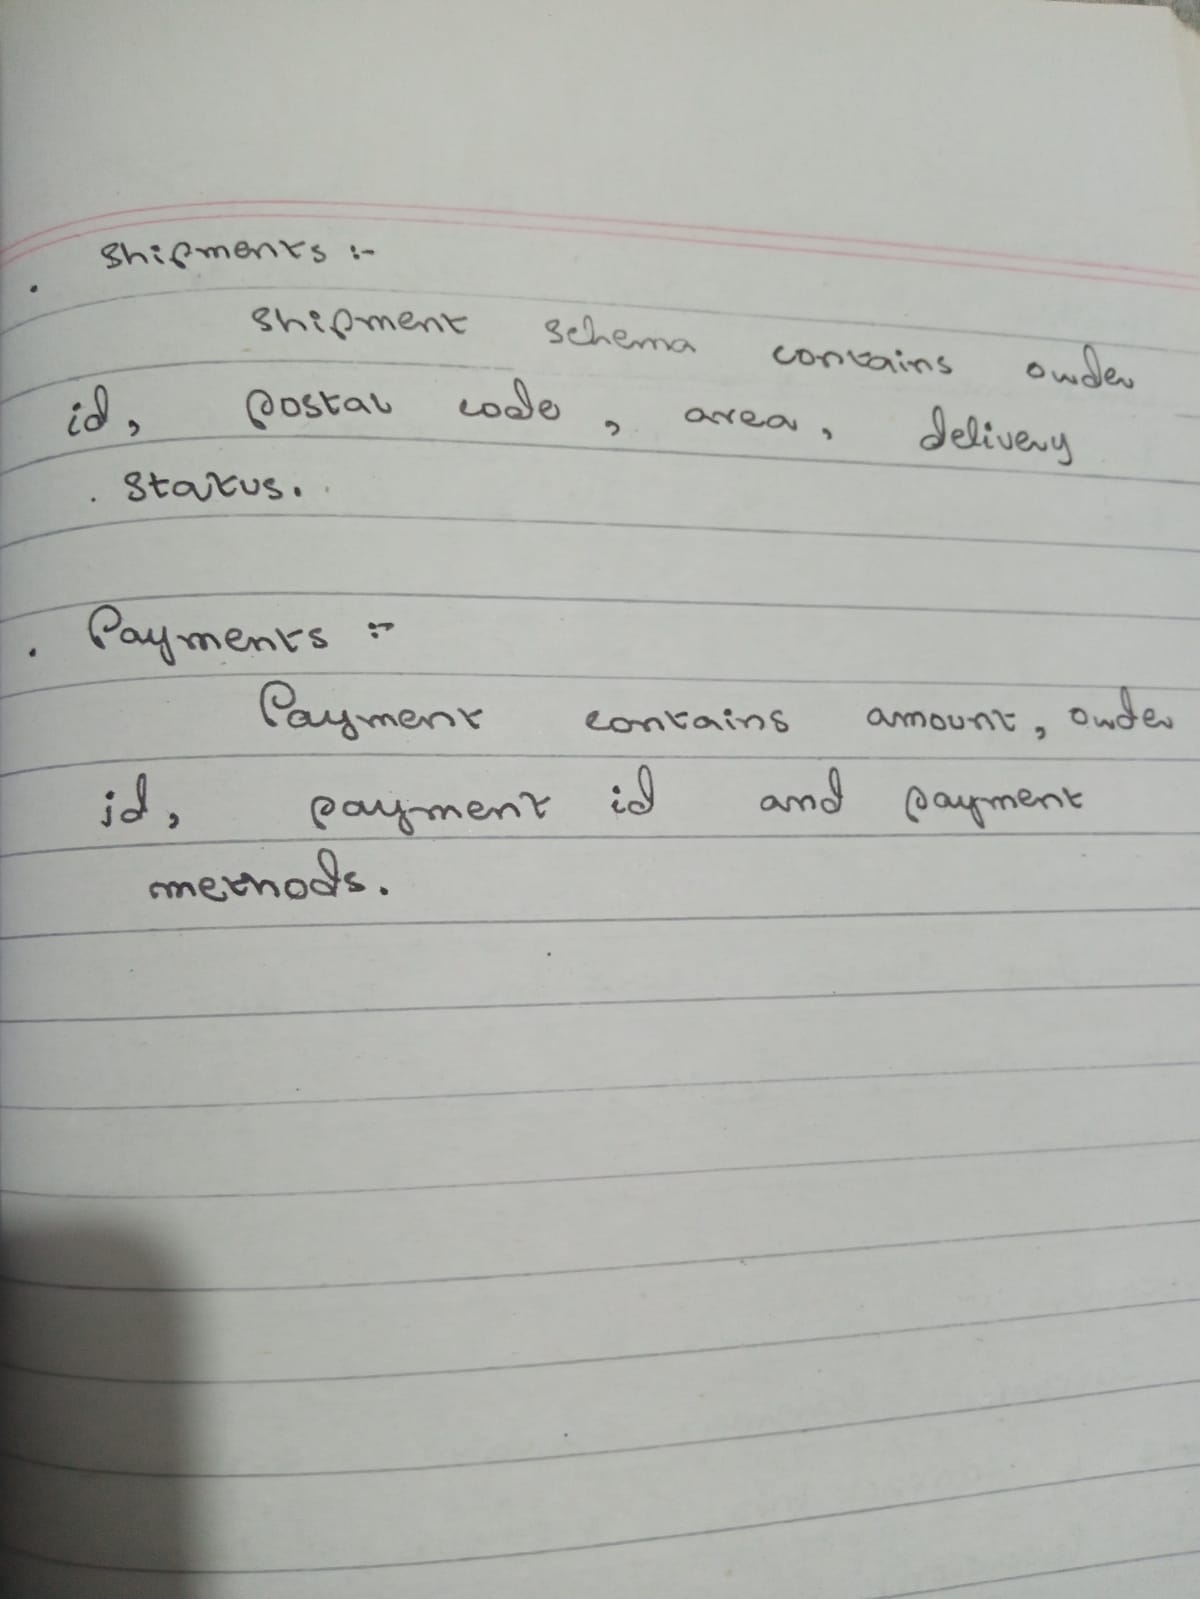 . Shipments :-
Shipment schema contains order
id, postal code, area, delivery
. Status.
. Payments :-
Payment contains amount, order
id, payment id and payment
methods.